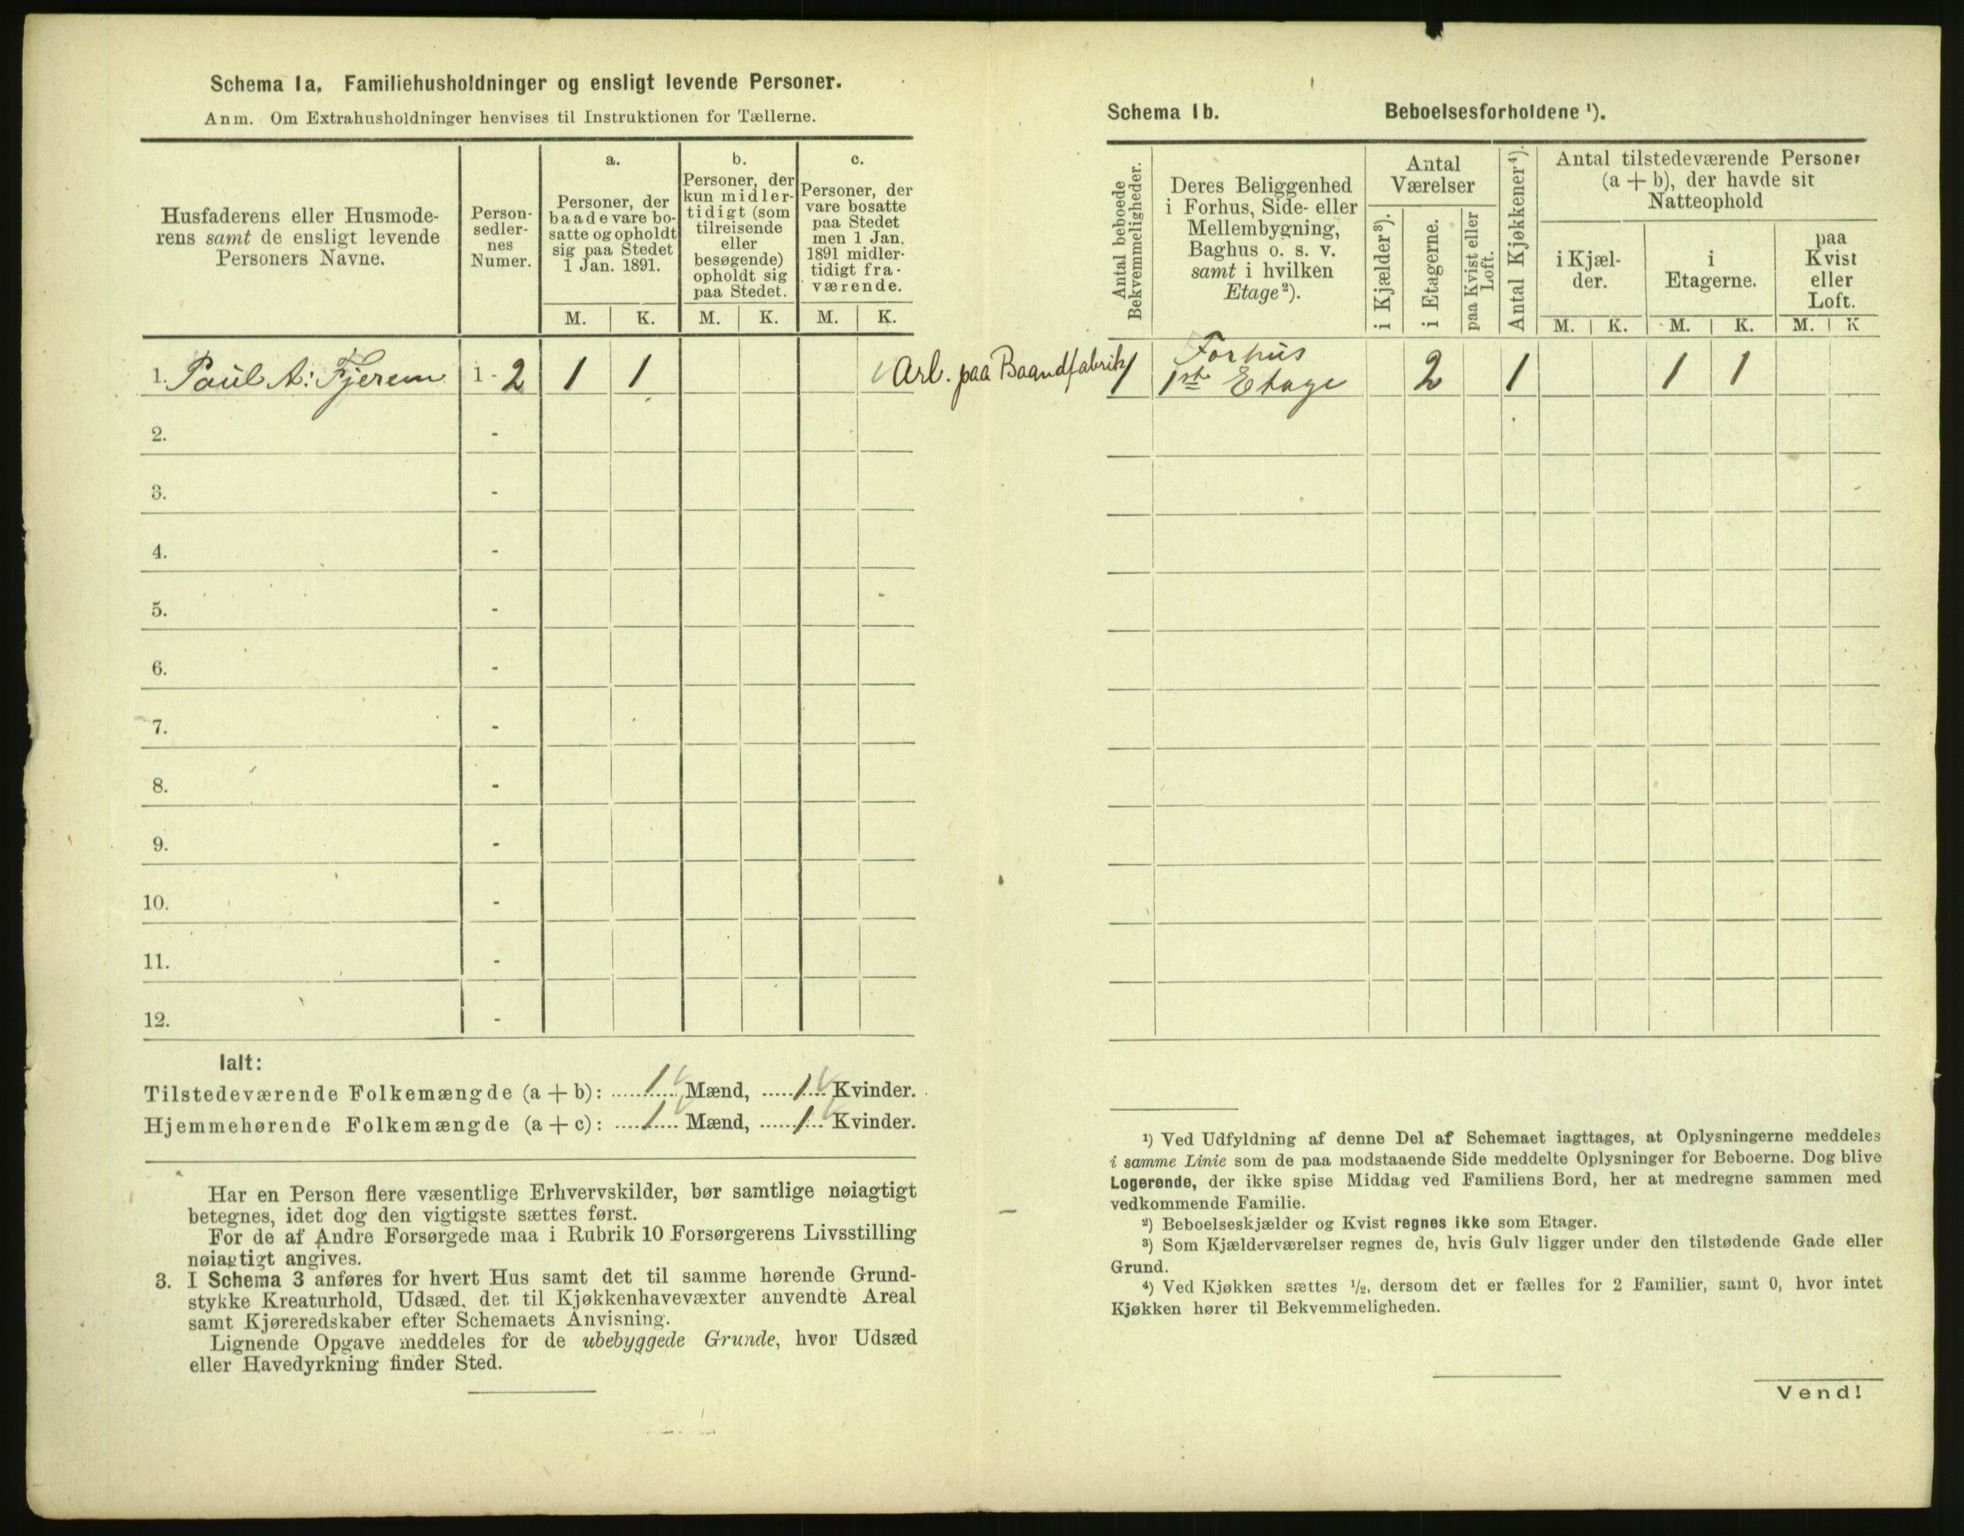 Schema 1a. Familiehusholdninger og ensligt levende Personer.
Anm. Om Extrahusholdninger henvises til Instruktionen for Tællerne.
Husfaderens eller Husmode-
rens samt de ensligt levende
Personers Navne.
Person-
sedler-
nes
Numer.
a.
Personer, der
baade vare bo-
satte og opholdt
sig paa Stedet
1 Jan. 1891.
b.
Personer, der
kun midler-
tidigt (som
tilreisende
eller
besøgende)
opholdt sig
paa Stedet.
c.
Personer, der
vare bosatte
paa Stedet
men 1 Jan.
1891 midler-
tidigt fra-
værende.
M. K. M. K. M. K.
1. Paul A: Fjerem 1 - 2 1 1 Arb. paa Baandfabrik
2. -
3. -
4. -
5. -
6. -
7. -
8. -
9. -
10. -
11. -
12. -
Ialt:
Tilstedeværende Folkemængde (a + b): 1 Mænd, 1 Kvinder.
Hjemmehørende Folkemængde (a + c): 1 Mænd, 1 Kvinder.
Har en Person flere væsentlige Erhvervskilder, bør samtlige nøiagtigt
betegnes, idet dog den vigtigste sættes først.
For de af Andre Forsørgede maa i Rubrik 10 Forsørgerens Livsstilling
nøiagtigt angives.
3. I Schema 3 anføres for hvert Hus samt det til samme hørende Grund-
stykke Kreaturhold, Udsæd, det til Kjøkkenhavevæxter anvendte Areal
samt Kjøreredskaber efter Schemaets Anvisning.
Lignende Opgave meddeles for de ubebyggede Grunde, hvor Udsæd
eller Havedyrkning finder Sted.
Schema 1b. Beboelsesforholdene ¹).
Antal beboede
Bekvemmeligheder.
Deres Beliggenhed
i Forhus, Side- eller
Mellembygning,
Baghus o. s. v.
samt i hvilken
Etage²).
Antal
Værelser
i Kjælder³).
i Etagerne.
paa Kvist eller
Loft.
Antal Kjøkkener⁴).
Antal tilstedeværende Personer
(a + b), der havde sit
Natteophold
i Kjæl-
der.
i
Etagerne.
paa
Kvist
eller
Loft.
M. K. M. K. M. K
1 Forhus
1ste Etage 2 1 1 1
¹) Ved Udfyldning af denne Del af Schemaet iagttages, at Oplysningerne meddeles
i samme Linie som de paa modstaaende Side meddelte Oplysninger for Beboerne. Dog blive
Logerende, der ikke spise Middag ved Familiens Bord, her at medregne sammen med
vedkommende Familie.
²) Beboelseskjælder og Kvist regnes ikke som Etager.
³) Som Kjælderværelser regnes de, hvis Gulv ligger under den tilstødende Gade eller
Grund.
⁴) Ved Kjøkken sættes ½, dersom det er fælles for 2 Familier, samt 0, hvor intet
Kjøkken hører til Bekvemmeligheden.
Vend!